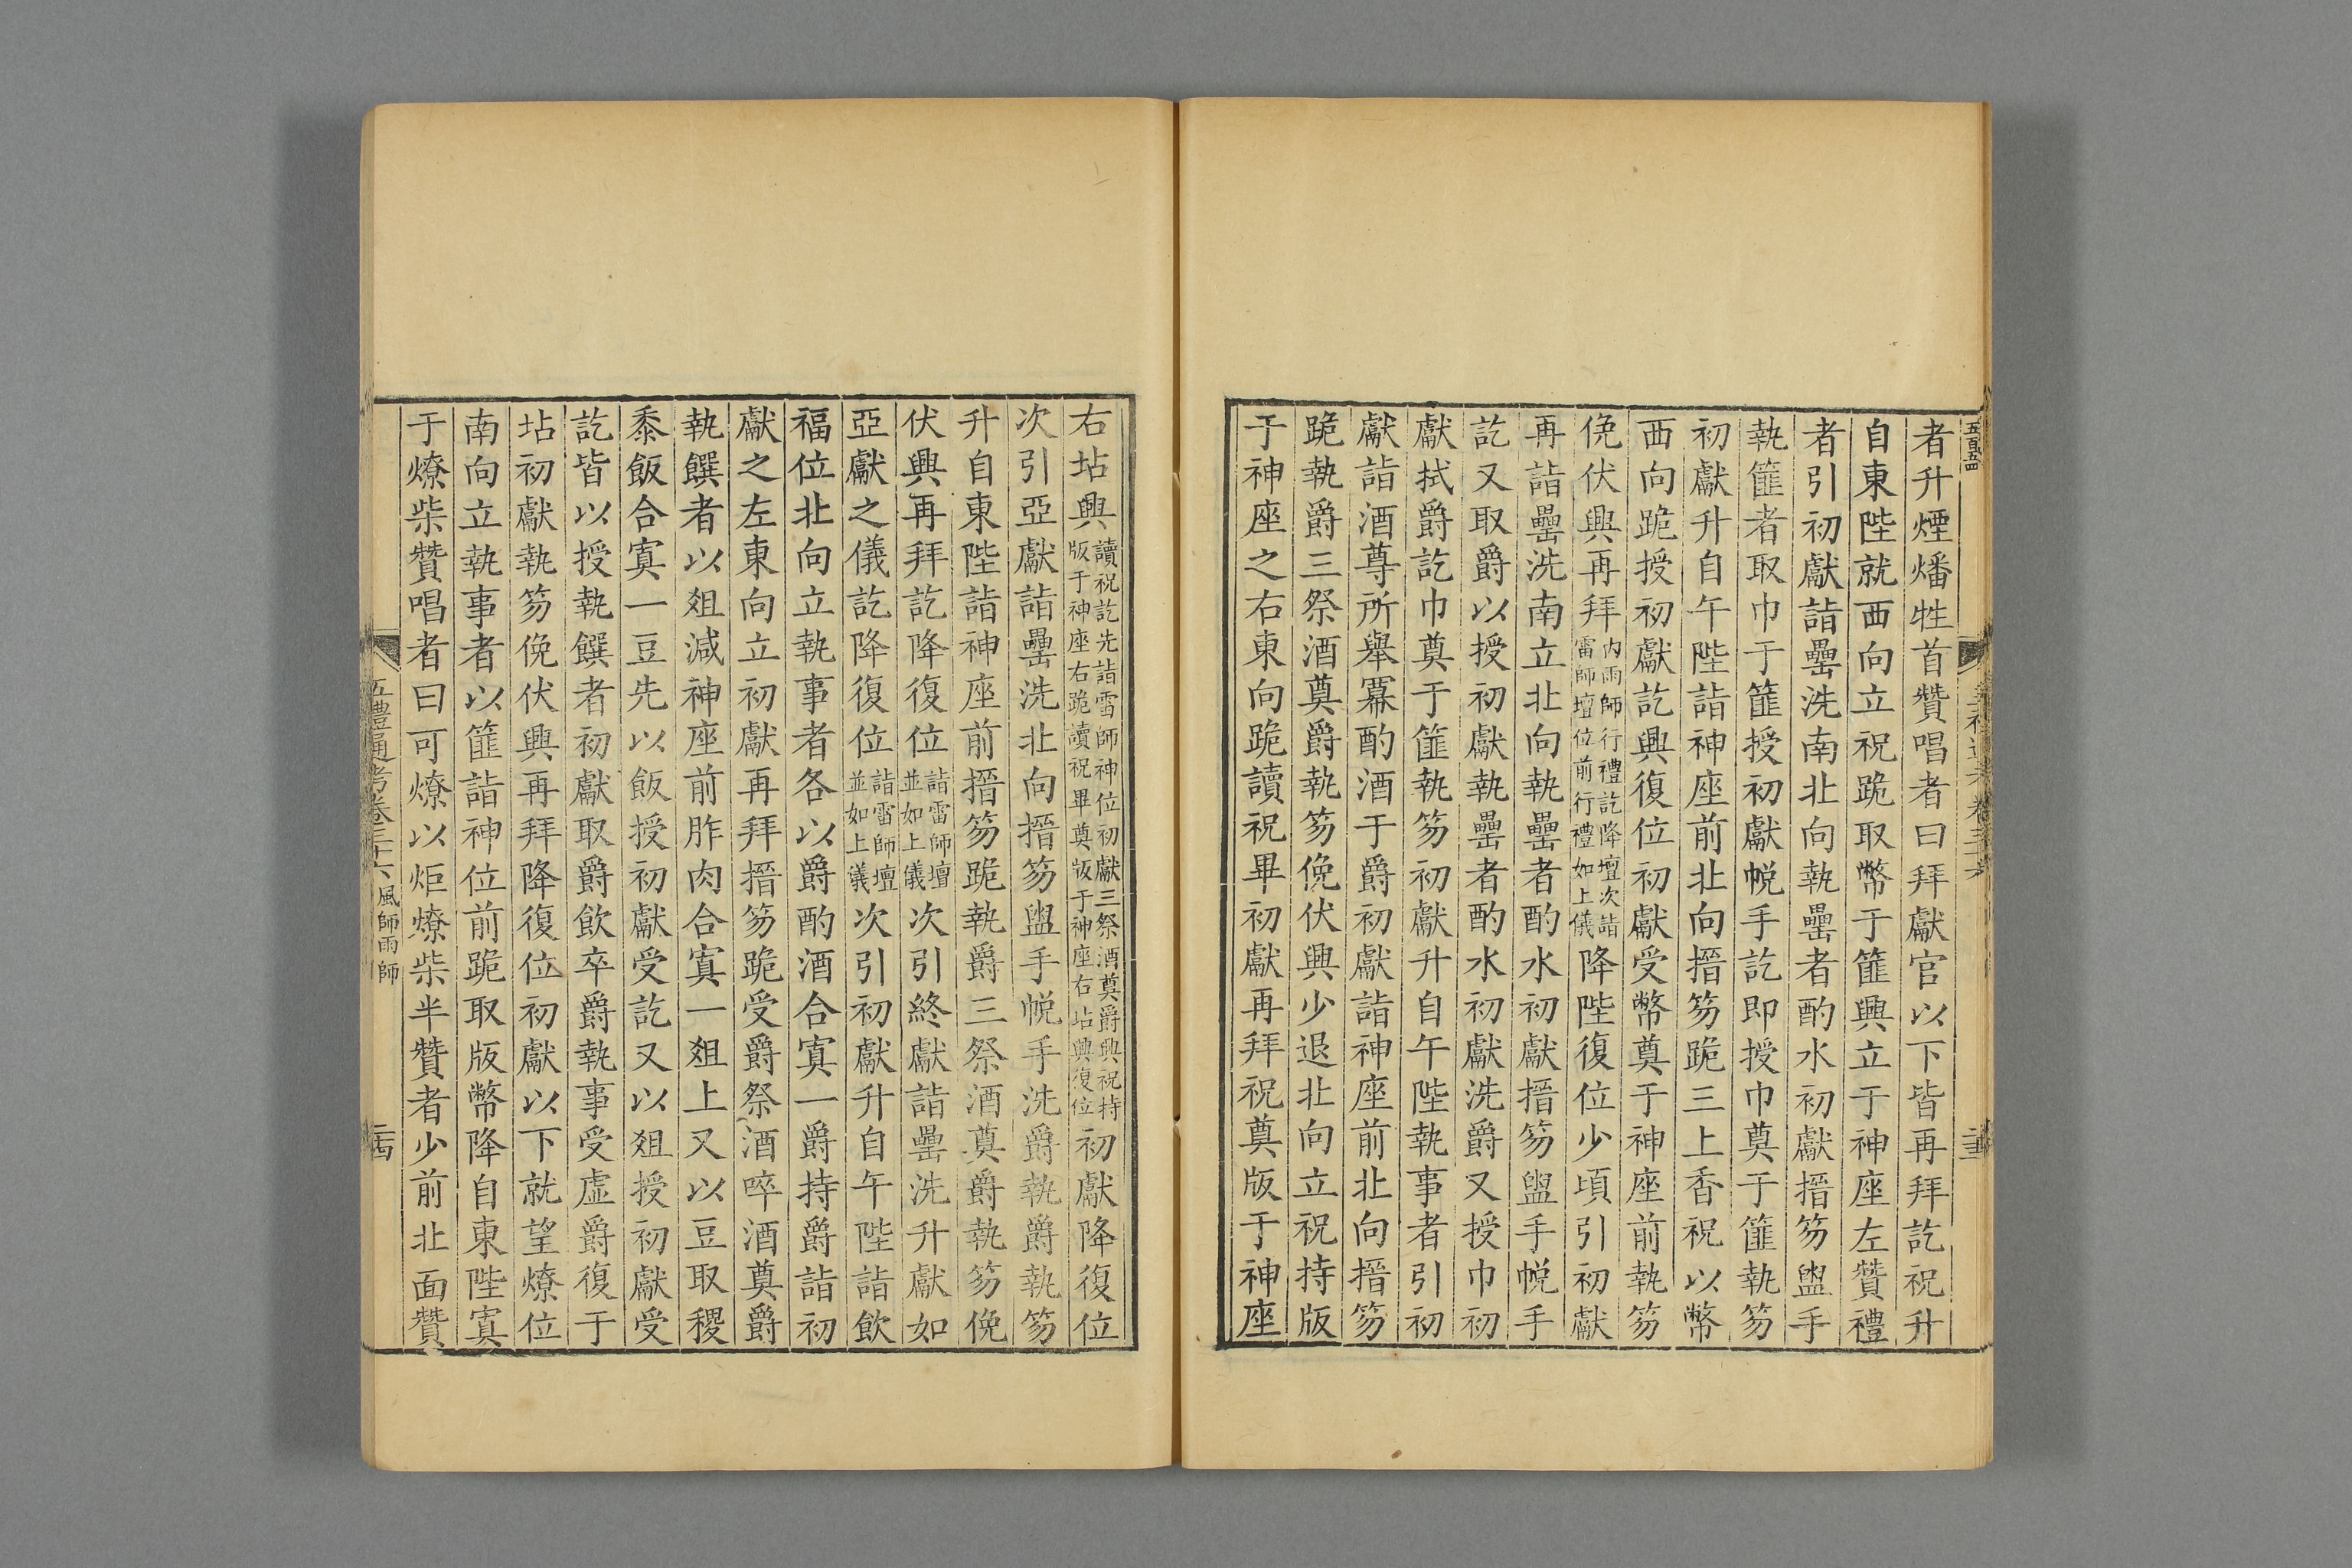 者升煙燔牲首贊唱者曰拜獻官以下皆再拜訖祝升
自東陛就西向立祝跪取幣于篚興立于神座左贊禮
者引初獻詣罍洗南北向執罍者酌水初獻搢笏盥手
執篚者取巾于篚授初獻帨手訖即授巾奠于篚執笏
初獻升自午陛詣神座前北向搢笏跪三上香祝以幣
西向跪授初獻訖興復位初獻受幣奠于神座前執笏
俛伏興再拜內雨師行禮訖降壇次詣雷師壇位前行禮如上儀降陛復位少頃引初獻
再詣罍洗南立北向執罍者酌水初獻搢笏盥手帨手
訖又取爵以授初獻執罍者酌水初獻洗爵又授巾初
獻拭爵訖巾奠于篚執笏初獻升自午陛執事者引初
獻詣酒尊所舉冪酌酒于爵初獻詣神座前北向搢笏
跪執爵三祭酒奠爵執笏俛伏興少退北向立祝持版
于神座之右東向跪讀祝畢初獻再拜祝奠版于神座
右坫興讀祝訖先詣雷師神位初獻三祭酒奠爵興祝持版于神座右跪讀祝畢奠版于神座右坫興復位初獻降復位
次引亞獻詣罍洗北向搢笏盥手帨手洗爵執爵執笏
升自東陛詣神座前搢笏跪執爵三祭酒奠爵執笏俛
伏興再拜訖降復位詣雷師壇並如上儀次引終獻詣罍洗升獻如
亞獻之儀訖降復位詣雷師壇並如上儀次引初獻升自午陛詣飲
福位北向立執事者各以爵酌酒合寘一爵持爵詣初
獻之左東向立初獻再拜搢笏跪受爵祭酒啐酒奠爵
執饌者以俎減神座前胙肉合寘一俎上又以豆取稷
黍飯合寘一豆先以飯授初獻受訖又以俎授初獻受
訖皆以授執饌者初獻取爵飲卒爵執事受虛爵復于
坫初獻執笏俛伏興再拜降復位初獻以下就望燎位
南向立執事者以篚詣神位前跪取版幣降自東陛寘
于燎柴贊唱者曰可燎以炬燎柴半贊者少前北面贊
五禮通考卷三十六 風師雨師